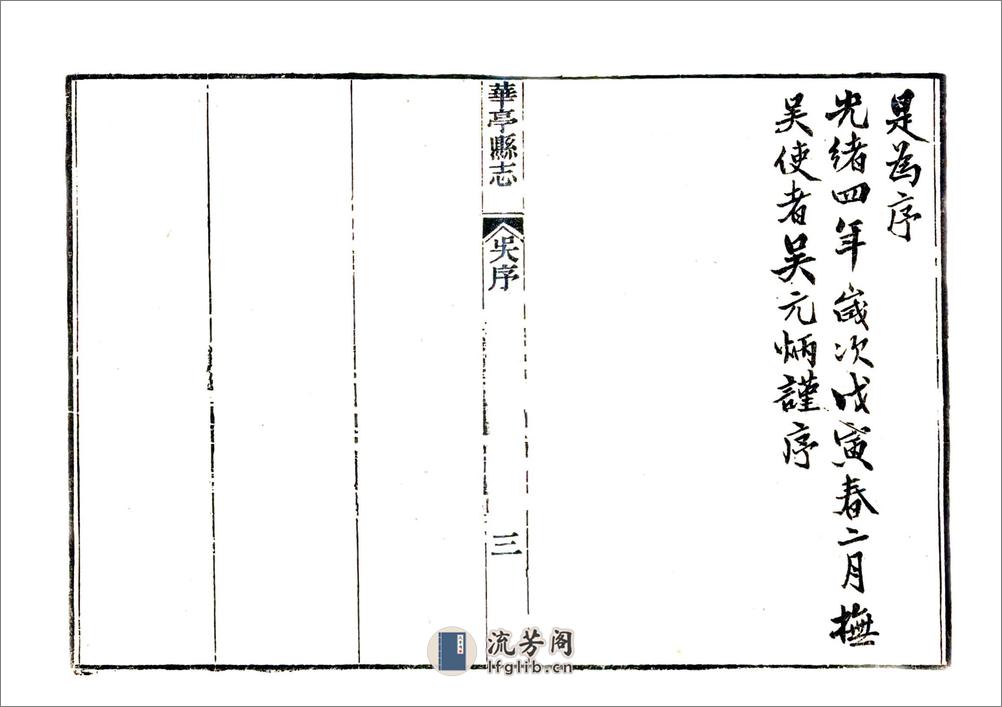 是為序
光緒四年歲次戊寅春二月撫
吳使者吳元炳謹序
華亭縣志
吳序
三
流芳阁
lfglib.cn